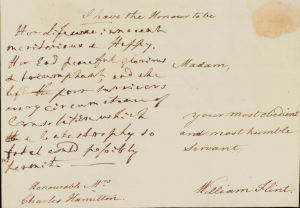 I have the Honour to be
Her life was innocent
meritorious & Happy.
Her End peaceful glorious
& triumphant, and she
left the poor survivors
every circumstance of
Consolation which
a Catastrophy so
fatal could possibly
permit —
Madam,
your most obedient
and most humble
Servant,
William Flint.
Honourable Mrs
Charles Hamilton